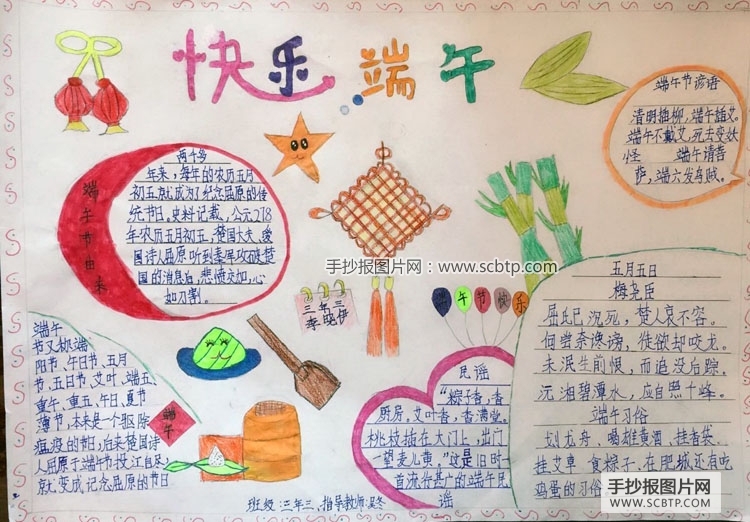 快乐端午
端午节谚语
清明插柳，端午插艾。
端午不戴艾，死去变妖
怪 端午请菩
萨，端六发乌贼。
端午节由来
两千多
年来，每年的农历五月
初五就成为了纪念屈原的传
统节日。史料记载，公元278
年农历五月初五，楚国大夫、爱
国诗人屈原听到秦军攻破楚
国的消息后，悲愤交加，心
如刀割。
手抄报图片网：www.scbtp.com
三年三
李晓伊
端午节快乐
五月五日
梅尧臣
屈氏已沉死，楚人哀不容。
何尝奈谗谤，徒欲却蛟龙。
未泯生前恨，而追没后踪。
沅湘碧潭水，应自照千峰。
端午习俗
划龙舟、喝雄黄酒、挂香袋、
挂艾草、食粽子、在肥城还有吃
鸡蛋的习俗
端午
节又称端
阳节、午日节、五月
节、五日节、艾叶、端五、
重午、重五、午日、夏节
蒲节，本来是一个驱除
瘟疫的节日，后来楚国诗
人屈原于端午节投江自尽，
就变成纪念屈原的节日
端午
民谣
“粽子香，香
厨房，艾叶香，香满堂。
桃枝插在大门上，出门
一望麦儿黄。”这是旧时
首流行甚广的端午民
谣
班级：三年三、指导教师：吴冬
手抄报图片网
WWW.SCBTP.COM